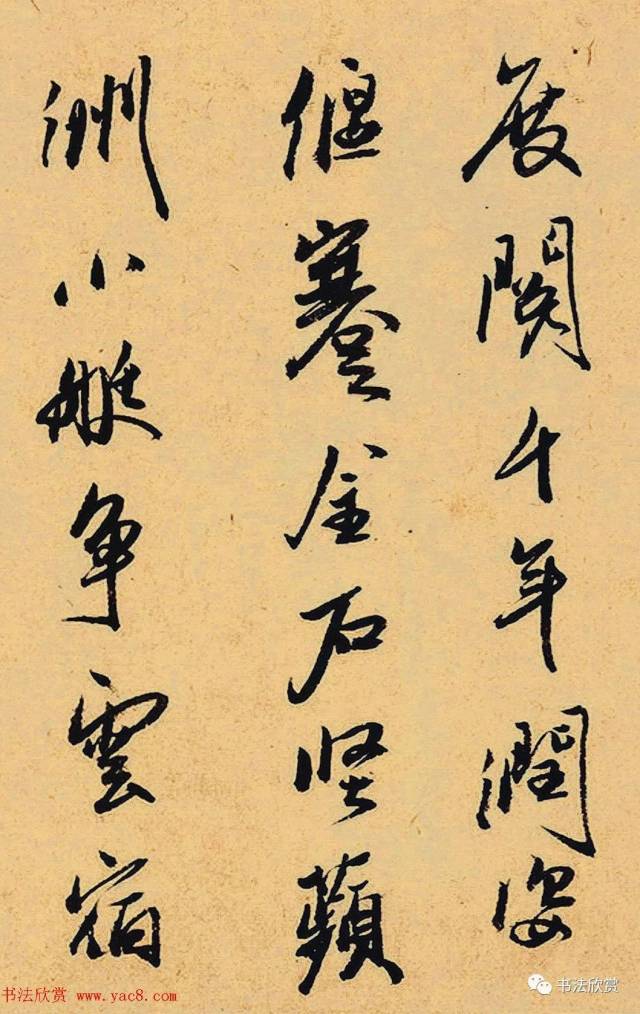 閱千年潤姿
偃蹇金石堅蘋
洲小艇爭雲宿
书法欣赏 www.yac8.com
书法欣赏